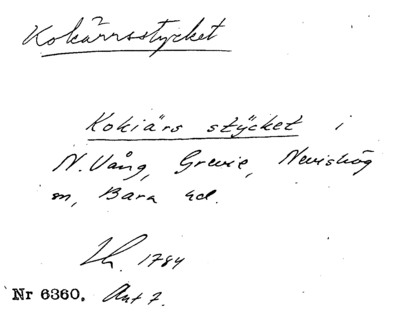 Kokärrsstycket
Kokiärs stÿcket i
N. Vång, Grevie, Nevishög
m, Bara hd.
1784
Nr 6360. Ant 7.